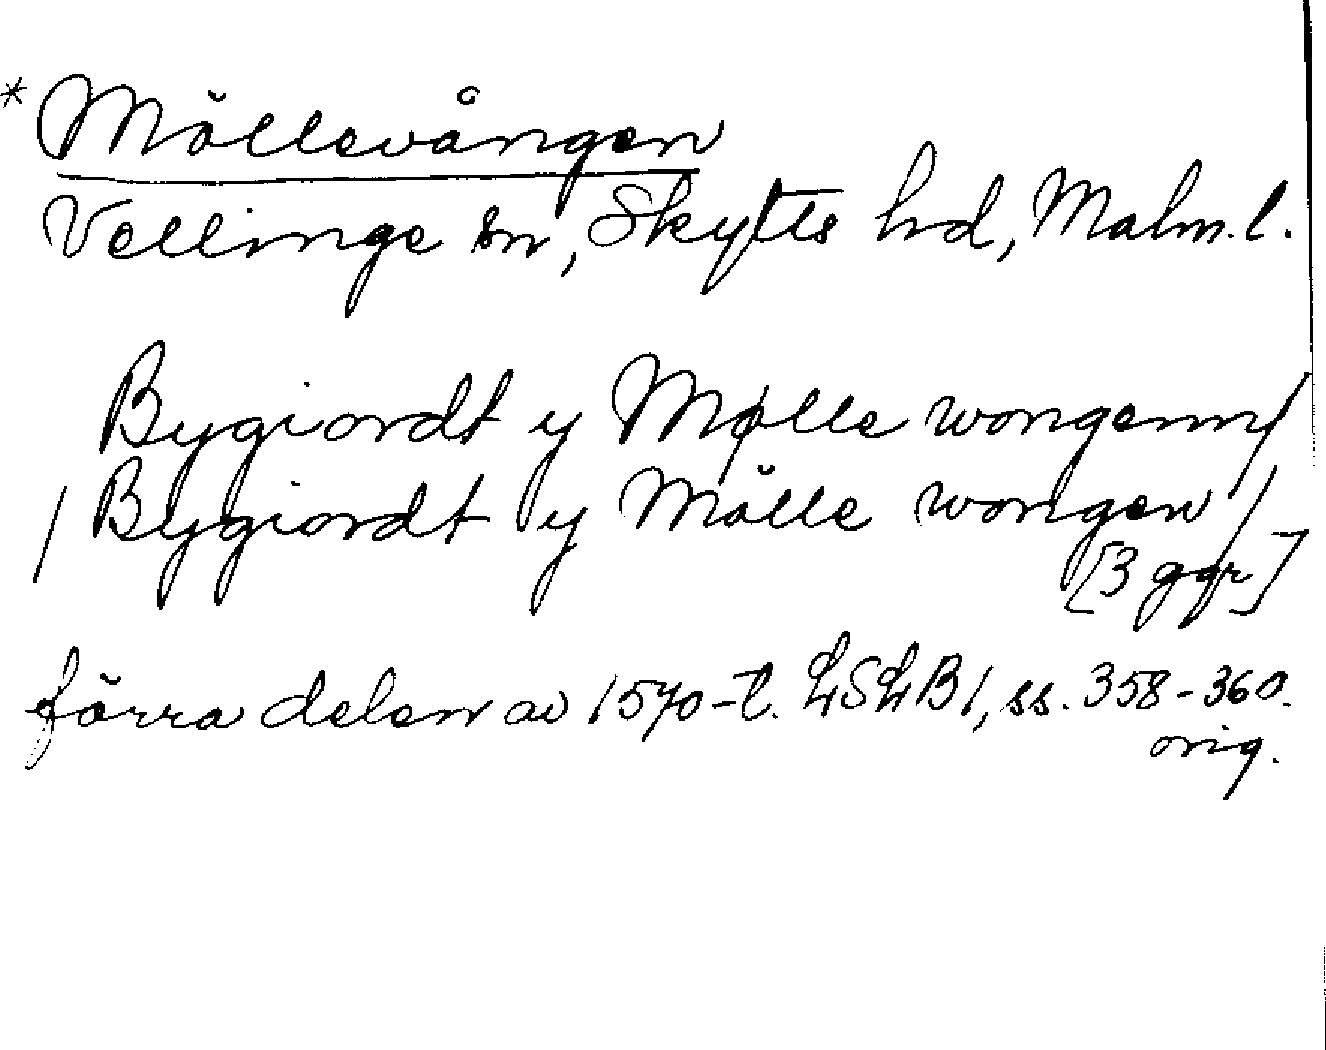 * Möllevången
Vellinge sn, Skytts hd, Malm. l.
Bygiordt y Mølle wongenn/
/ Bygiordt y Mölle wongen /
[3 ggr]
förra delen av 1570-t. LSLB1, ss. 358-360.
orig.